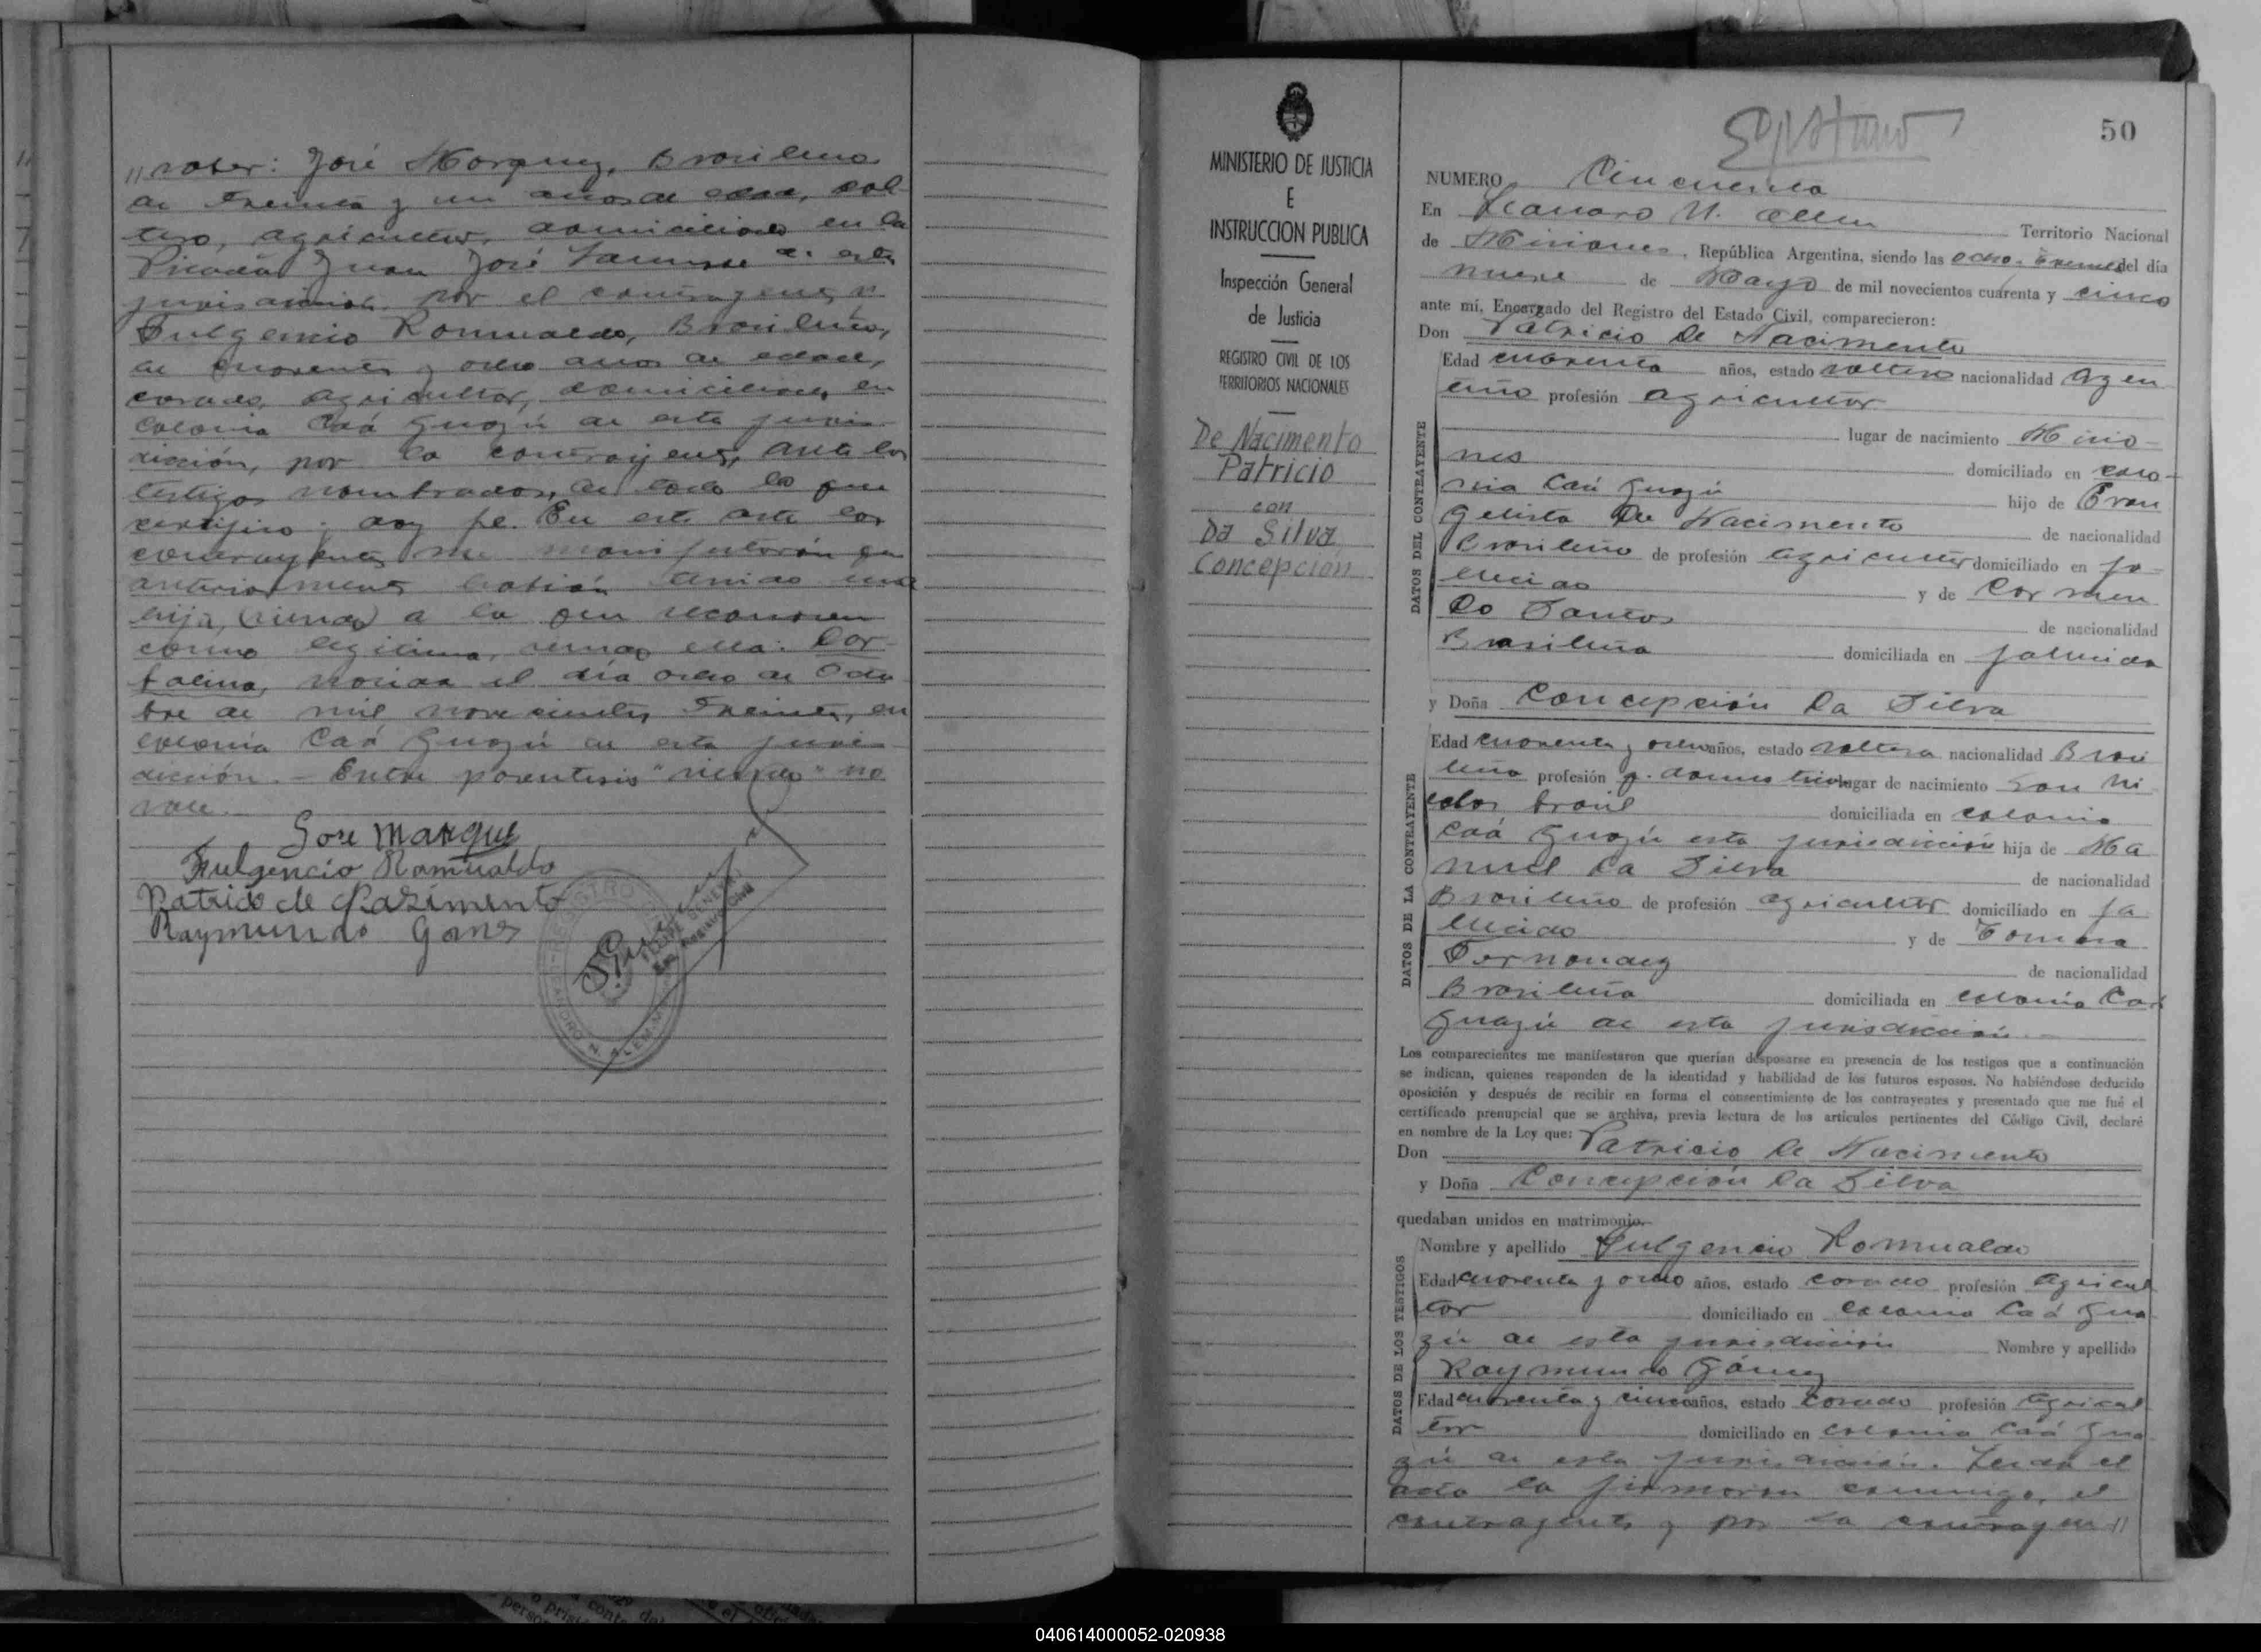 "saber: José Marquez, Brasileño
de treinta y un años de edad, sol-
tero, agricultor, domiciliado en la
Picada Juan José Lanusse de esta
jurisdicción, por el contrayente y
Fulgencio Romualdo, Brasileño,
de cuarenta y ocho años de edad,
casado, agricultor, domiciliado en
colonia Caá Guazú de esta juris-
dicción, por la contrayente, ante los
testigos nombrados, de todo lo que
certifico y doy fe. En este acto los
contrayentes me manifestarón que
anteriormente habián tenido una
hija, (siendo) a la que reconocen
como legitima, siendo ella:
nacida el día ocho de Octu-
bre de mil novecientos treinta, en
colonia Caá Guazú de esta juris-
dicción.- Entre parentesis "siendo" no
vale.-
Jose Marque
Fulgencio Romualdo
Patricio de Nasimento
Raymundo Gomes
REGISTRO
LEANDRO N. ALEM
50
MINISTERIO DE JUSTICIA
E
INSTRUCCION PUBLICA
Inspección General
de Justicia
REGISTRO CIVIL DE LOS
TERRITORIOS NACIONALES
De Nacimento
Patricio
con
Da Silva
Concepción
NUMERO Cincuenta
En Leandro N. Alem Territorio Nacional
de Misiones, República Argentina, siendo las ocho y treinta del día
nueve de Mayo de mil novecientos cuarenta y cinco
ante mí, Encargado del Registro del Estado Civil, comparecieron:
Don Patricio De Nacimento
DATOS DEL CONTRAYENTE
Edad cuarenta años, estado soltero nacionalidad Argen-
tino profesión agricultor
lugar de nacimiento Misio-
nes domiciliado en colo-
nia Caá Guazú hijo de Evan
gelista De Nacimento de nacionalidad
Brasileño de profesión agricultor domiciliado en fa-
llecido y de Carmen
Do Santos de nacionalidad
Brasileña domiciliada en fallecida
y Doña Concepción Da Silva
DATOS DE LA CONTRAYENTE
Edad cuarenta y ocho años, estado soltera nacionalidad Brasi
leña profesión q. domesticos lugar de nacimiento San Ni
colas brasil domiciliada en colonia
Caá Guazú esta jurisdicción hija de Ma
nuel Da Silva de nacionalidad
Brasileño de profesión agricultor domiciliado en fa
llecido y de Tomasa
Fernandez de nacionalidad
Brasileña domiciliada en colonia Caá
Guazú de esta jurisdicción.-
Los comparecientes me manifestaron que querían desposarse en presencia de los testigos que a continuación
se indican, quienes responden de la identidad y habilidad de los futuros esposos. No habiéndose deducido
oposición y después de recibir en forma el consentimiento de los contrayentes y presentado que me fué el
certificado prenupcial que se archiva, previa lectura de los artículos pertinentes del Código Civil, declaré
en nombre de la Ley que:
Don Patricio De Nacimento
y Doña Concepción Da Silva
quedaban unidos en matrimonio.-
DATOS DE LOS TESTIGOS
Nombre y apellido Fulgencio Romualdo
Edad cuarenta y ocho años, estado casado profesión agricul
tor domiciliado en colonia Caá Gua
zú de esta jurisdicción Nombre y apellido
Raymundo Gómez
Edad cuarenta y cinco años, estado casado profesión agricul
tor domiciliado en colonia Caá Gua-
zú de esta jurisdicción. Leida el
acta la firmaron conmigo, el
contrayente y por la contrayen"
040614000052-020938